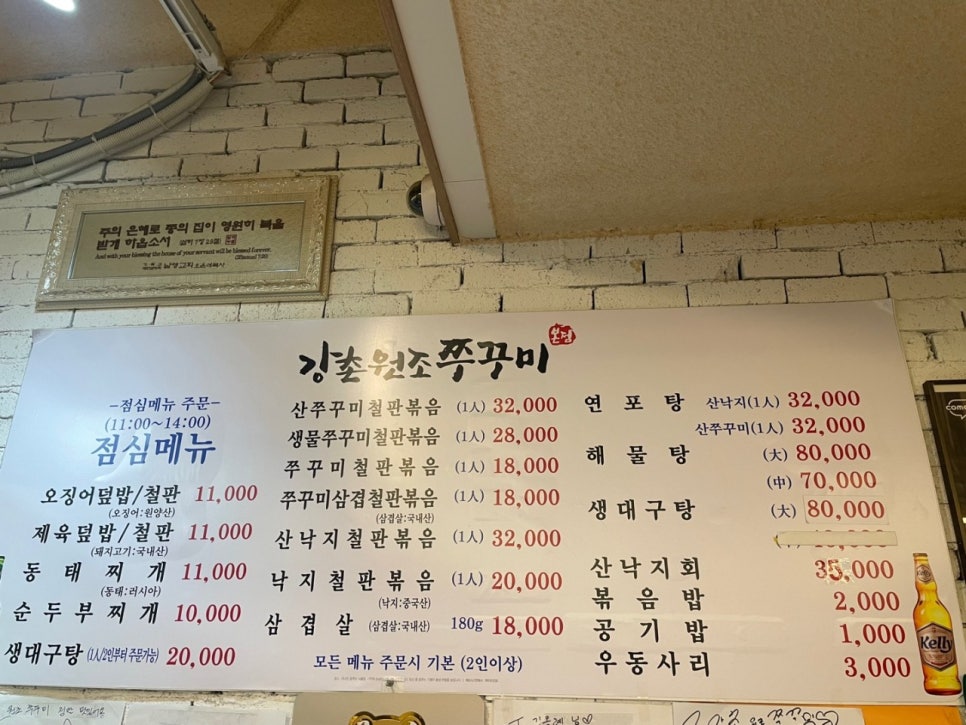 주의 은혜로 종의 집이 영원히 복을
받게 하옵소서
And with your blessing the house of your servant will be blessed forever.
강촌원조쭈꾸미 본점
-점심메뉴 주문-
(11:00~14:00)
점심메뉴
오징어덮밥/철판 11,000
(오징어:원양산)
제육덮밥/철판 11,000
(돼지고기:국내산)
동태찌개 11,000
(동태:러시아)
순두부찌개 10,000
생대구탕 (1人/2인부터 주문가능) 20,000
산쭈꾸미철판볶음 (1人) 32,000
생물쭈꾸미철판볶음 (1人) 28,000
쭈꾸미철판볶음 (1人) 18,000
쭈꾸미삼겹철판볶음 (1人) 18,000
(삼겹살:국내산)
산낙지철판볶음 (1人) 32,000
낙지철판볶음 (1人) 20,000
(낙지:중국산)
삼겹살 (삼겹살:국내산) 180g 18,000
모든 메뉴 주문시 기본 (2인이상)
연포탕 산낙지(1人) 32,000
산쭈꾸미(1人) 32,000
해물탕 (大) 80,000
(中) 70,000
생대구탕 (大) 80,000
산낙지회 35,000
볶음밥 2,000
공기밥 1,000
우동사리 3,000
Kelly